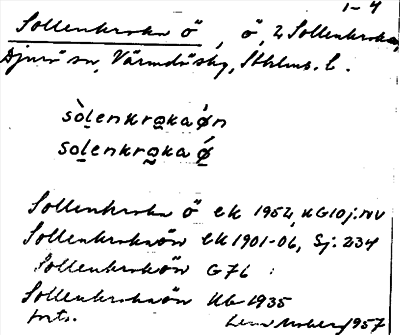 1-4
Sollenkroka ö, ö, 2 Sollenkroka,
Djurö sn, Värmdö skg, Sthlms. l.
sòlenkrokaǿn
solenkroka ǿ
Sollenkroka ö ek 1952, KG 10j. NV
Sollenkrokaön ek 1901-06, Sj. 234
Sollenkrokön G76
Sollenkrokaön Ub 1935
forts. 1957